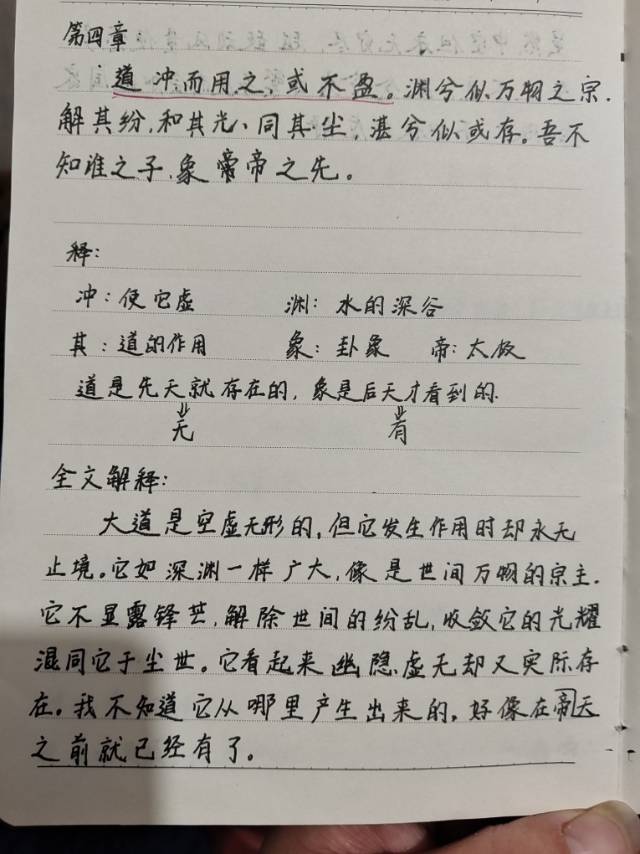 第四章
道冲而用之,或不盈。渊兮似万物之宗.
解其纷,和其光、同其尘,湛兮似或存。吾不
知谁之子.象帝之先。
释:
冲:使它虚 渊:水的深谷
其:道的作用 象:卦象 帝:太极
道是先天就存在的,象是后天才看到的.
⇓ ⇓
无 有
全文解释:
大道是空虚无形的,但它发生作用时却永无
止境。它如深渊一样广大,像是世间万物的宗主.
它不显露锋芒,解除世间的纷乱,收敛它的光耀
混同它于尘世。它看起来幽隐.虚无却又实际存
在。我不知道它从哪里产生出来的,好像在帝天
之前就已经有了。